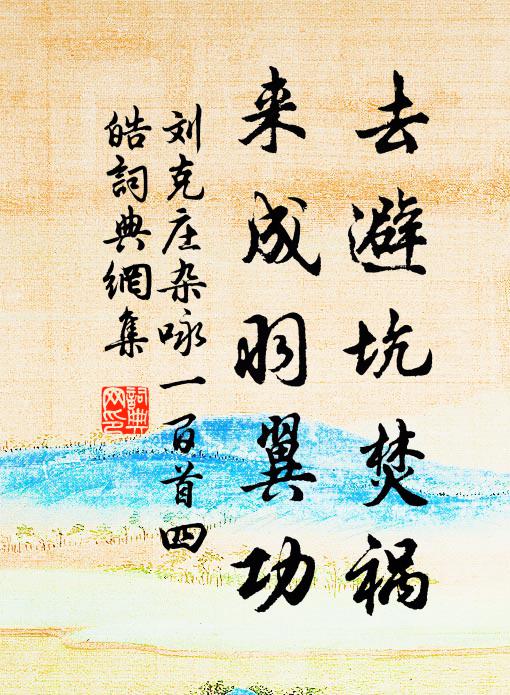 去避坑焚祸
来成羽翼功
刘克庄杂咏一百首四
皓詞典網集
詞典网印